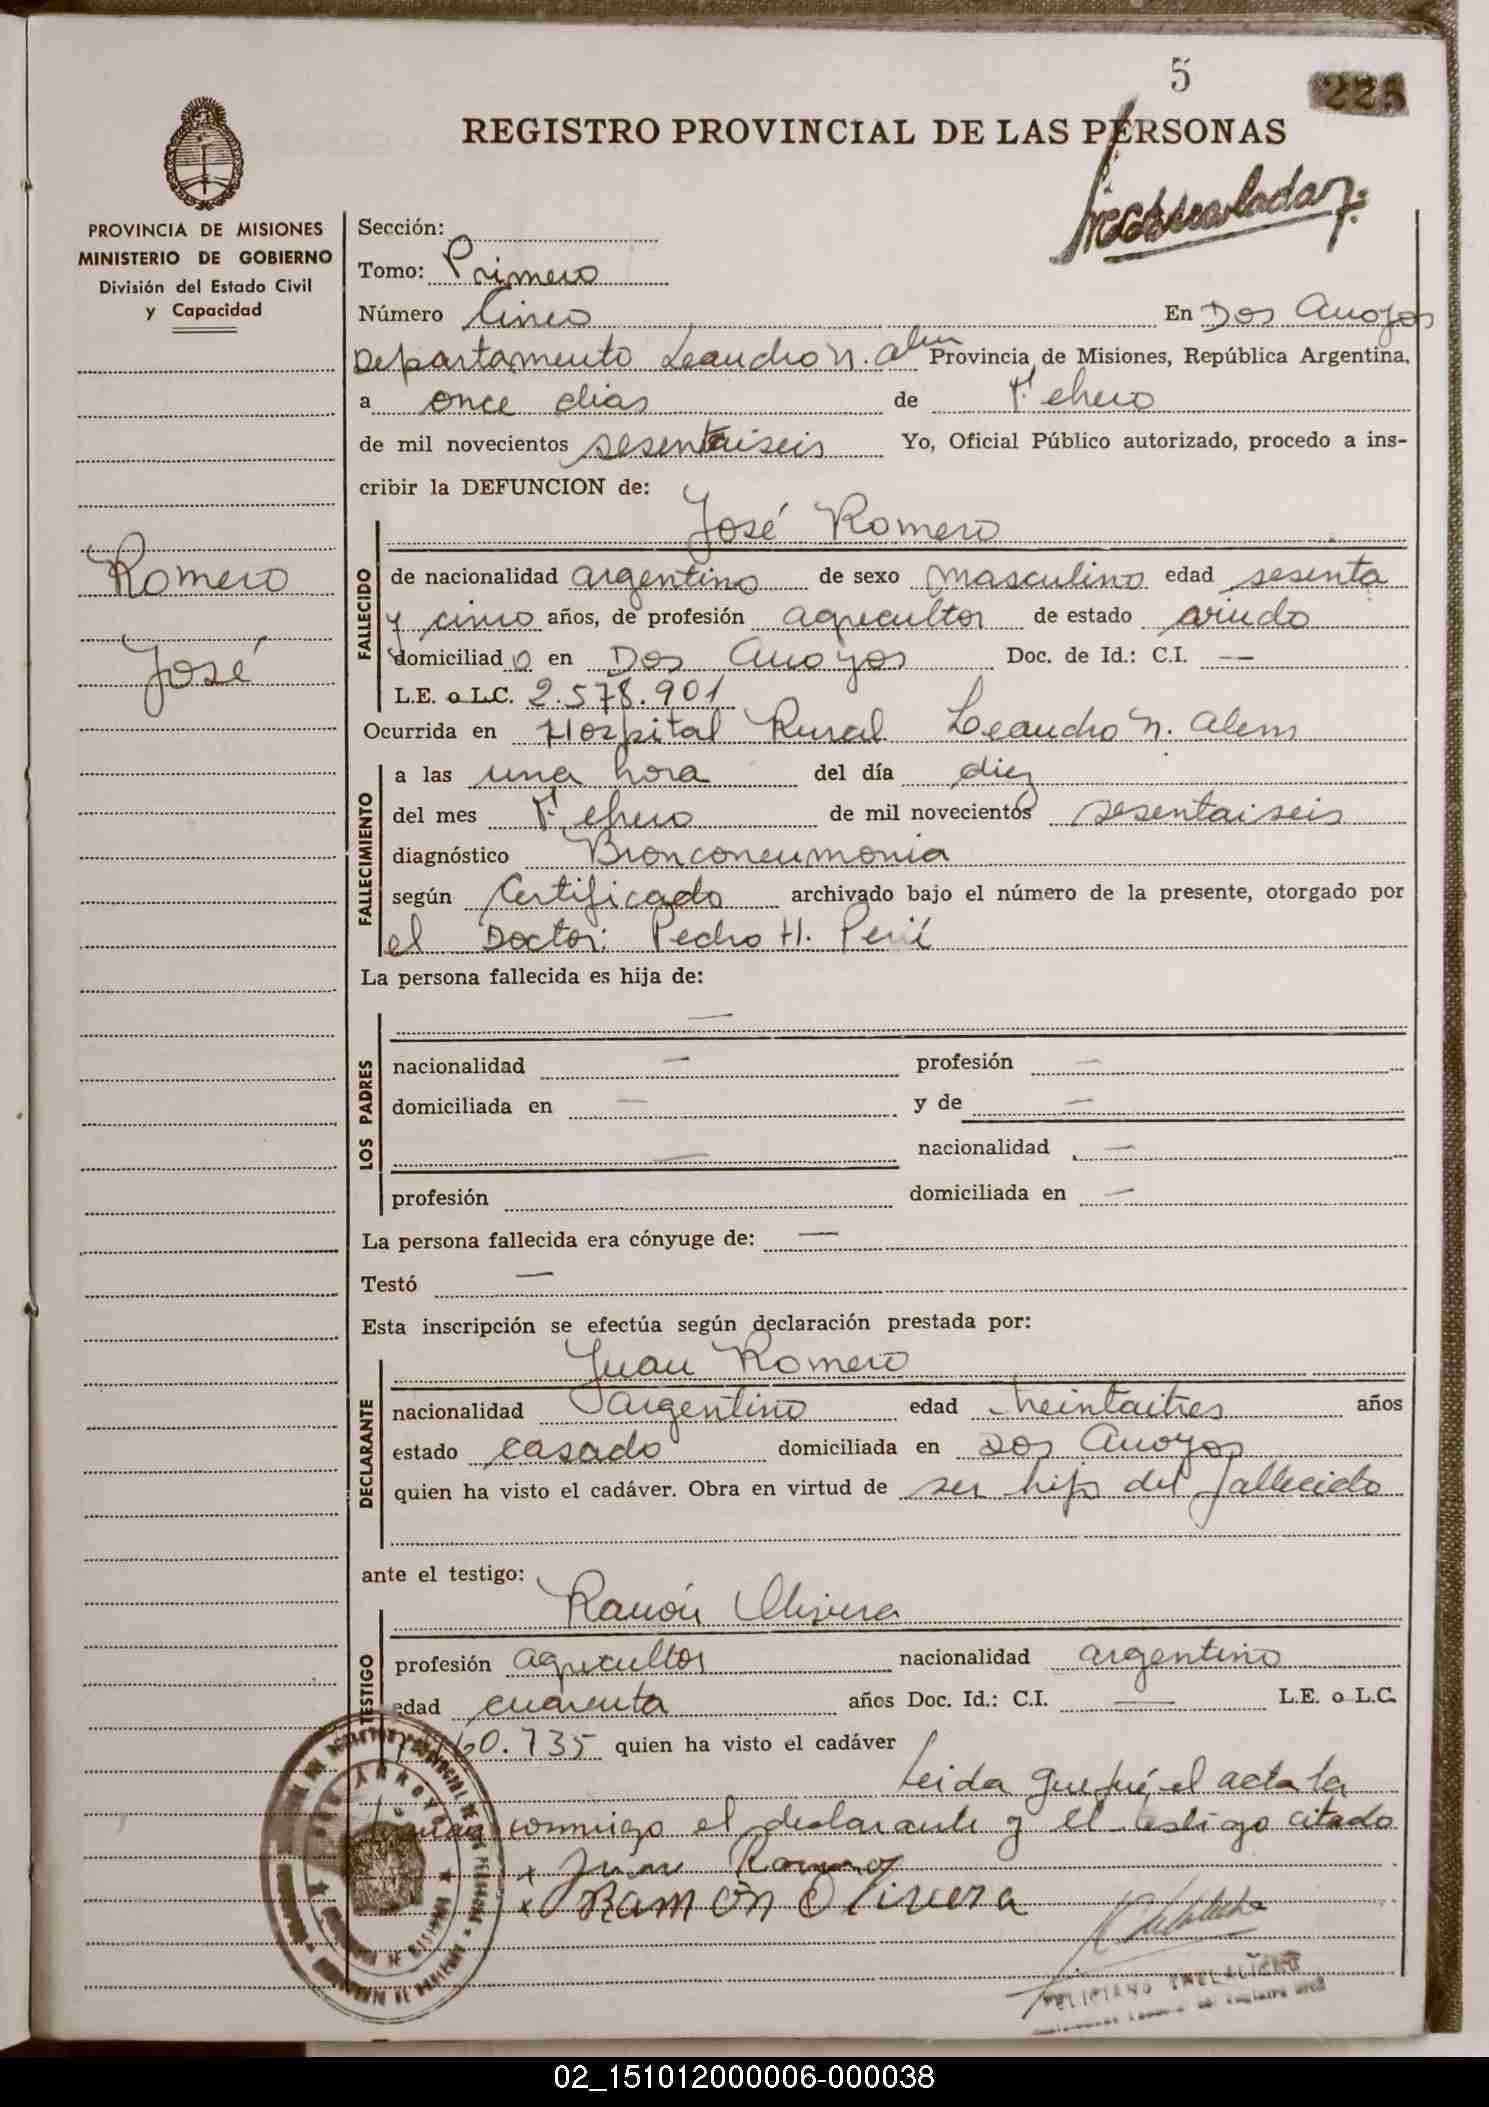 5
225
REGISTRO PROVINCIAL DE LAS PERSONAS
PROVINCIA DE MISIONES
MINISTERIO DE GOBIERNO
División del Estado Civil
y Capacidad
Romero
José
Sección:
Tomo: Primero
Número Cinco En Dos Arroyos
Departamento Leandro N. Alem Provincia de Misiones, República Argentina,
a once dias de Febrero
de mil novecientos sesentaiseis Yo, Oficial Público autorizado, procedo a ins-
cribir la DEFUNCION de:
José Romero
FALLECIDO
de nacionalidad argentino de sexo masculino edad sesenta
y cinco años, de profesión agricultor de estado viudo
domiciliado en Dos Arroyos Doc. de Id.: C.I. --
L.E. o L.C. 2.578.901
Ocurrida en Hospital Rural Leandro N. Alem
FALLECIMIENTO
a las una hora del día diez
del mes Febrero de mil novecientos sesentaiseis
diagnóstico Bronconeumonia
según Certificado archivado bajo el número de la presente, otorgado por
el Doctor: Pedro H.
La persona fallecida es hija de:
—
LOS PADRES
nacionalidad — profesión —
domiciliada en — y de —
— nacionalidad —
profesión domiciliada en —
La persona fallecida era cónyuge de: —
Testó —
Esta inscripción se efectúa según declaración prestada por:
Juan Romero
DECLARANTE
nacionalidad argentino edad treintaitres años
estado casado domiciliada en Dos Arroyos
quien ha visto el cadáver. Obra en virtud de ser hijo del fallecido
ante el testigo:
Ramón Olivera
TESTIGO
profesión agricultor nacionalidad argentino
edad cuarenta años Doc. Id.: C.I. — L.E. o L.C.
60.735 quien ha visto el cadáver
Leida que fué el acta la
firman conmigo el declarante y el testigo citado
x Juan Romero
x Ramón Olivera
FELICIANO
02_151012000006-000038